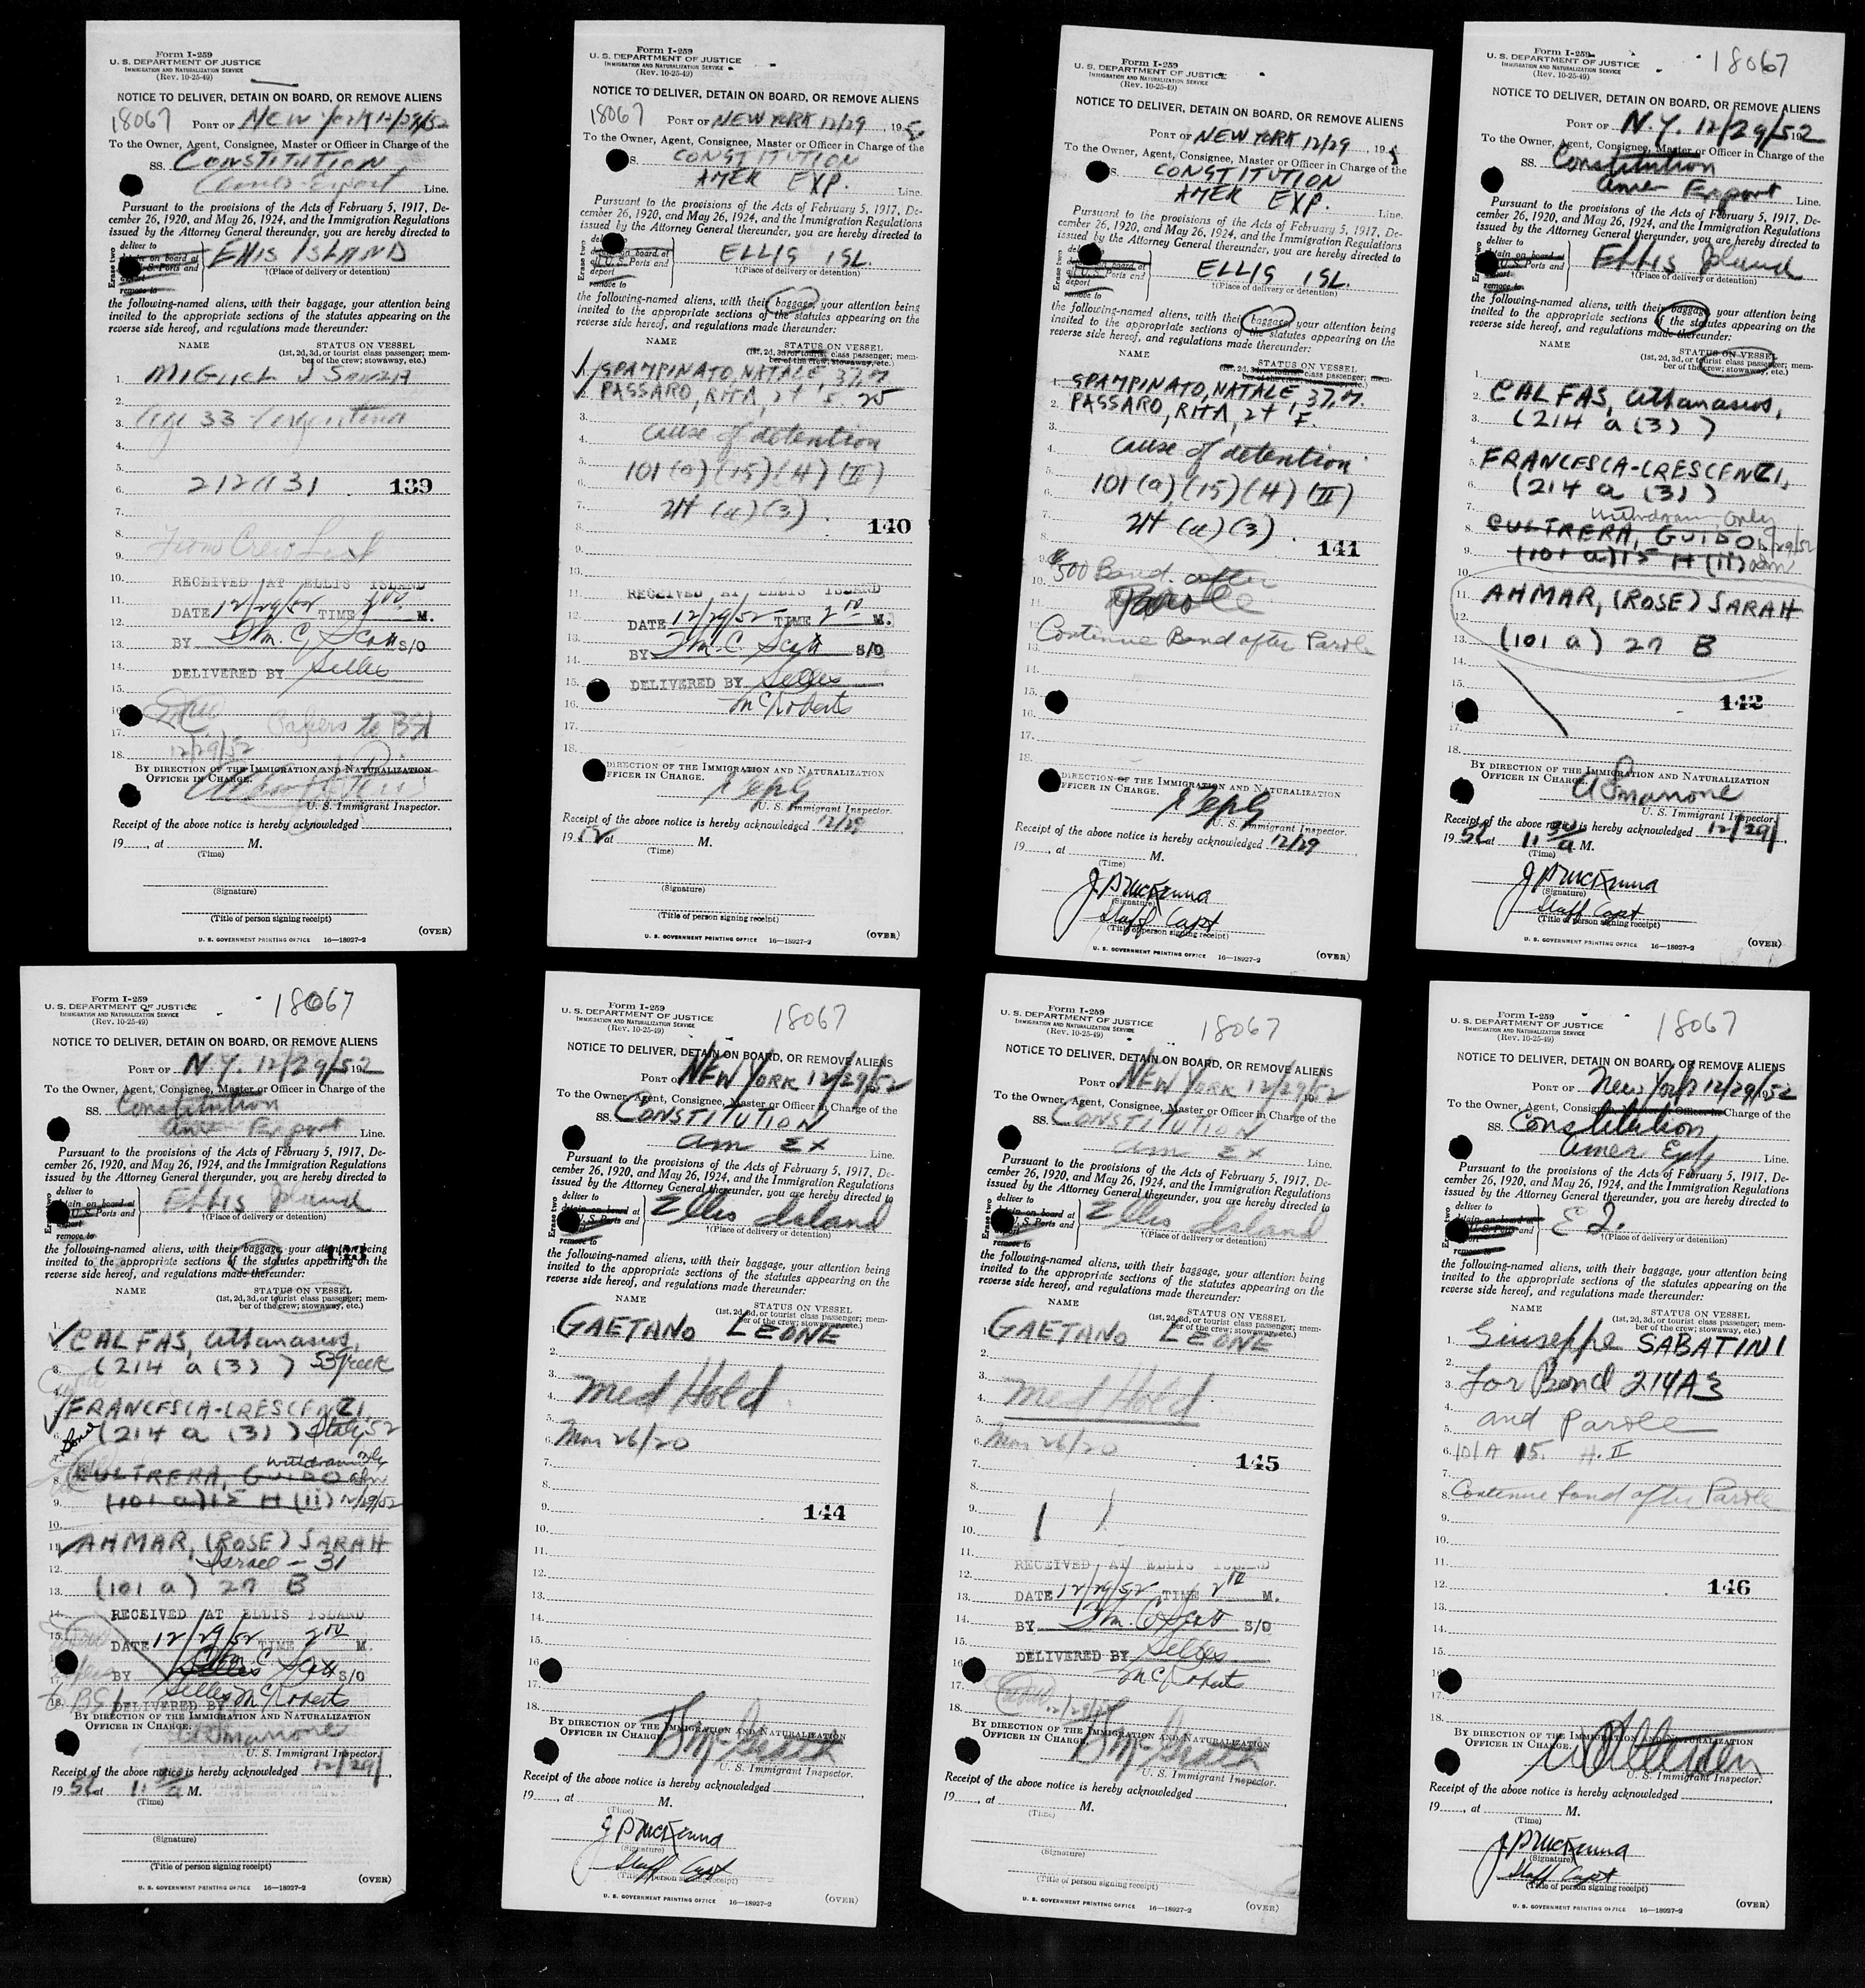 Form I-259
U. S. DEPARTMENT OF JUSTICE
IMMIGRATION AND NATURALIZATION SERVICE
(Rev. 10-25-49)
NOTICE TO DELIVER, DETAIN ON BOARD, OR REMOVE ALIENS
18067 PORT OF NEW YORK 12/29/52
To the Owner, Agent, Consignee, Master or Officer in Charge of the
SS. CONSTITUTION
Line.
Pursuant to the provisions of the Acts of February 5, 1917, De-
cember 26, 1920, and May 26, 1924, and the Immigration Regulations
issued by the Attorney General thereunder, you are hereby directed to
Erase two
deliver to
on board at
U. S. Ports and
remove to
ELLIS ISLAND
†(Place of delivery or detention)
the following-named aliens, with their baggage, your attention being
invited to the appropriate sections of the statutes appearing on the
reverse side hereof, and regulations made thereunder:
NAME STATUS ON VESSEL
(1st, 2d, 3d, or tourist class passenger; mem-
ber of the crew; stowaway, etc.)
1.
2.
3. Age 33 Argentena
4.
5.
6. 139
7.
8. From Crew List
9.
10. RECEIVED AT ELLIS ISLAND
11. DATE 12/29/52 TIME 2 00 M.
12.
13. BY Wm. C. Scott S/O
14. DELIVERED BY Selles
15.
16.
17. Papers to BSI
18. 12/29/52
BY DIRECTION OF THE IMMIGRATION AND NATURALIZATION
OFFICER IN CHARGE.
U. S. Immigrant Inspector.
Receipt of the above notice is hereby acknowledged
19 , at M.
(Time)
(Signature)
(Title of person signing receipt)
U. S. GOVERNMENT PRINTING OFFICE 16—18927-2 (OVER)
Form I-259
U. S. DEPARTMENT OF JUSTICE
IMMIGRATION AND NATURALIZATION SERVICE
(Rev. 10-25-49)
NOTICE TO DELIVER, DETAIN ON BOARD, OR REMOVE ALIENS
18067 PORT OF NEW YORK 12/29, 195
To the Owner, Agent, Consignee, Master or Officer in Charge of the
S. CONSTITUTION
AMER EXP. Line.
Pursuant to the provisions of the Acts of February 5, 1917, De-
cember 26, 1920, and May 26, 1924, and the Immigration Regulations
issued by the Attorney General thereunder, you are hereby directed to
Erase two
on board at
all U. S. Ports and
deport
remove to
ELLIS ISL.
†(Place of delivery or detention)
the following-named aliens, with their baggage, your attention being
invited to the appropriate sections of the statutes appearing on the
reverse side hereof, and regulations made thereunder:
NAME STATUS ON VESSEL
(1st, 2d, 3d, or tourist class passenger; mem-
ber of the crew; stowaway, etc.)
1. SPAMPINATO, NATALE, 37, M.
2. PASSARO, RITA, 24 F.
3.
4. Cause of detention
5. 101 (a) (15) (H) (II)
6.
7. 214 (a) (3).
8. 140
9.
10.
11. RECEIVED AT ELLIS ISLAND
12. DATE 12/29/52 TIME 2 00 M.
13. BY Wm. C. Scott S/O
14.
15. DELIVERED BY Selles
16. McRoberts
17.
18.
BY DIRECTION OF THE IMMIGRATION AND NATURALIZATION
OFFICER IN CHARGE.
U. S. Immigrant Inspector.
Receipt of the above notice is hereby acknowledged 12/29
19 52 at M.
(Time)
(Signature)
(Title of person signing receipt)
U. S. GOVERNMENT PRINTING OFFICE 16—18927-2 (OVER)
Form I-259
U. S. DEPARTMENT OF JUSTICE
IMMIGRATION AND NATURALIZATION SERVICE
(Rev. 10-25-49)
NOTICE TO DELIVER, DETAIN ON BOARD, OR REMOVE ALIENS
PORT OF NEW YORK 12/29, 195
To the Owner, Agent, Consignee, Master or Officer in Charge of the
S. CONSTITUTION
AMER EXP. Line.
Pursuant to the provisions of the Acts of February 5, 1917, De-
cember 26, 1920, and May 26, 1924, and the Immigration Regulations
issued by the Attorney General thereunder, you are hereby directed to
Erase two
on board at
all U. S. Ports and
deport
remove to
ELLIS ISL.
†(Place of delivery or detention)
the following-named aliens, with their baggage, your attention being
invited to the appropriate sections of the statutes appearing on the
reverse side hereof, and regulations made thereunder:
NAME STATUS ON VESSEL
(1st, 2d, 3d, or tourist class passenger; mem-
ber of the crew; stowaway, etc.)
1. SPAMPINATO, NATALE, 37, M.
2. PASSARO, RITA, 24 F.
3.
4. Cause of detention
5.
6. 101 (a) (15) (H) (II)
7. 214 (a) (3).
8. 141
9. $500 Bond. after
10.
11. Parole
12. Continue Bond after Parole
13.
14.
15.
16.
17.
18.
BY DIRECTION OF THE IMMIGRATION AND NATURALIZATION
OFFICER IN CHARGE.
U. S. Immigrant Inspector.
Receipt of the above notice is hereby acknowledged 12/29
19 , at M.
(Time)
(Signature)
Staff Capt
(Title of person signing receipt)
U. S. GOVERNMENT PRINTING OFFICE 16—18927-2 (OVER)
Form I-259
U. S. DEPARTMENT OF JUSTICE
IMMIGRATION AND NATURALIZATION SERVICE
(Rev. 10-25-49)
18067
NOTICE TO DELIVER, DETAIN ON BOARD, OR REMOVE ALIENS
PORT OF N.Y. 12/29/52
To the Owner, Agent, Consignee, Master or Officer in Charge of the
SS. Constitution
Amer Export Line.
Pursuant to the provisions of the Acts of February 5, 1917, De-
cember 26, 1920, and May 26, 1924, and the Immigration Regulations
issued by the Attorney General thereunder, you are hereby directed to
Erase two
deliver to
on board at
U. S. Ports and
remove to
Ellis Island
†(Place of delivery or detention)
the following-named aliens, with their baggage, your attention being
invited to the appropriate sections of the statutes appearing on the
reverse side hereof, and regulations made thereunder:
NAME STATUS ON VESSEL
(1st, 2d, 3d, or tourist class passenger; mem-
ber of the crew; stowaway, etc.)
1.
2. CALFAS, Athanasios,
3. (214 a (3) )
4.
5. FRANCESCA-CRESCENZI,
6. (214 a (3) )
7. Withdrawn only
8. CULTRERA, GUIDO 12/29/52
9. (101 a) 15 H (ii)
10.
11. AHMAR, (ROSE) SARAH
12.
13. (101 a) 27 B
14.
15.
142
17.
18.
BY DIRECTION OF THE IMMIGRATION AND NATURALIZATION
OFFICER IN CHARGE.
U. S. Immigrant Inspector.
Receipt of the above notice is hereby acknowledged 12/29/
19 52 at 11 30 a M.
(Time)
(Signature)
Staff Capt
(Title of person signing receipt)
U. S. GOVERNMENT PRINTING OFFICE 16—18927-2 (OVER)
Form I-259
U. S. DEPARTMENT OF JUSTICE
IMMIGRATION AND NATURALIZATION SERVICE
(Rev. 10-25-49)
18067
NOTICE TO DELIVER, DETAIN ON BOARD, OR REMOVE ALIENS
PORT OF N.Y. 12/29/52
To the Owner, Agent, Consignee, Master or Officer in Charge of the
SS. Constitution
Amer Export Line.
Pursuant to the provisions of the Acts of February 5, 1917, De-
cember 26, 1920, and May 26, 1924, and the Immigration Regulations
issued by the Attorney General thereunder, you are hereby directed to
Erase two
deliver to
on board at
U. S. Ports and
remove to
Ellis Island
†(Place of delivery or detention)
the following-named aliens, with their baggage, your attention being
invited to the appropriate sections of the statutes appearing on the
reverse side hereof, and regulations made thereunder:
143
NAME STATUS ON VESSEL
(1st, 2d, 3d, or tourist class passenger; mem-
ber of the crew; stowaway, etc.)
1.
CALFAS, Athanasios,
3. (214 a (3) ) 53 Greek
4.
FRANCESCA-CRESCENZI
6. Bond (214 a (3) ) Italy 52
withdrawn only
8. CULTRERA, GUIDO
9. (101 a) 15 H (ii) 12/29/52
10.
11. AHMAR, (ROSE) SARAH
Israel - 31
12.
13. (101 a) 27 B
14. RECEIVED AT ELLIS ISLAND
15. DATE 12/29/52 TIME 2 00 M.
BY Wm C. Scott S/O
Selles McRoberts
18. to BSI DELIVERED BY
BY DIRECTION OF THE IMMIGRATION AND NATURALIZATION
OFFICER IN CHARGE.
U. S. Immigrant Inspector.
Receipt of the above notice is hereby acknowledged 12/29/
19 52 at 11 30 a M.
(Time)
(Signature)
(Title of person signing receipt)
U. S. GOVERNMENT PRINTING OFFICE 16—18927-2 (OVER)
Form I-259
U. S. DEPARTMENT OF JUSTICE
IMMIGRATION AND NATURALIZATION SERVICE
(Rev. 10-25-49)
18067
NOTICE TO DELIVER, DETAIN ON BOARD, OR REMOVE ALIENS
PORT OF NEW YORK 12/29/52
To the Owner, Agent, Consignee, Master or Officer in Charge of the
SS. CONSTITUTION
Am Ex Line.
Pursuant to the provisions of the Acts of February 5, 1917, De-
cember 26, 1920, and May 26, 1924, and the Immigration Regulations
issued by the Attorney General thereunder, you are hereby directed to
Erase two
deliver to
detain on board at
U. S. Ports and
remove to
Ellis Island
†(Place of delivery or detention)
the following-named aliens, with their baggage, your attention being
invited to the appropriate sections of the statutes appearing on the
reverse side hereof, and regulations made thereunder:
NAME STATUS ON VESSEL
(1st, 2d, 3d, or tourist class passenger; mem-
ber of the crew; stowaway, etc.)
1. GAETANO LEONE
2.
3.
4. Med Hold
5.
6.
7.
8.
9. 144
10.
11.
12.
13.
14.
15.
16.
17.
18.
BY DIRECTION OF THE IMMIGRATION AND NATURALIZATION
OFFICER IN CHARGE. McGrath
U. S. Immigrant Inspector.
Receipt of the above notice is hereby acknowledged
19 , at M.
(Time)
(Signature)
Staff Capt
(Title of person signing receipt)
U. S. GOVERNMENT PRINTING OFFICE 16—18927-2 (OVER)
Form I-259
U. S. DEPARTMENT OF JUSTICE
IMMIGRATION AND NATURALIZATION SERVICE
(Rev. 10-25-49)
18067
NOTICE TO DELIVER, DETAIN ON BOARD, OR REMOVE ALIENS
PORT OF NEW YORK 12/29/52
To the Owner, Agent, Consignee, Master or Officer in Charge of the
SS. CONSTITUTION
Am Ex Line.
Pursuant to the provisions of the Acts of February 5, 1917, De-
cember 26, 1920, and May 26, 1924, and the Immigration Regulations
issued by the Attorney General thereunder, you are hereby directed to
Erase two
deliver to
detain on board at
U. S. Ports and
remove to
Ellis Island
†(Place of delivery or detention)
the following-named aliens, with their baggage, your attention being
invited to the appropriate sections of the statutes appearing on the
reverse side hereof, and regulations made thereunder:
NAME STATUS ON VESSEL
(1st, 2d, 3d, or tourist class passenger; mem-
ber of the crew; stowaway, etc.)
1. GAETANO LEONE
2.
3.
4. Med Hold
5.
6.
7. 145
8.
9.
10.
11. RECEIVED AT ELLIS ISLAND
12.
13. DATE 12/29/52 TIME 2 00 M.
14. BY Wm. C. Scott S/O
15. DELIVERED BY Selles
16. McRoberts
17.
18.
BY DIRECTION OF THE IMMIGRATION AND NATURALIZATION
OFFICER IN CHARGE. McGrath
U. S. Immigrant Inspector.
Receipt of the above notice is hereby acknowledged
19 , at M.
(Time)
(Signature)
(Title of person signing receipt)
U. S. GOVERNMENT PRINTING OFFICE 16—18927-2 (OVER)
Form I-259
U. S. DEPARTMENT OF JUSTICE
IMMIGRATION AND NATURALIZATION SERVICE
(Rev. 10-25-49)
18067
NOTICE TO DELIVER, DETAIN ON BOARD, OR REMOVE ALIENS
PORT OF New York 12/29/52
To the Owner, Agent, Consignee, Master or Officer in Charge of the
SS. Constitution
Amer Exp Line.
Pursuant to the provisions of the Acts of February 5, 1917, De-
cember 26, 1920, and May 26, 1924, and the Immigration Regulations
issued by the Attorney General thereunder, you are hereby directed to
Erase two
deliver
detain on board at
U. S. Ports and
remove to
E I.
†(Place of delivery or detention)
the following-named aliens, with their baggage, your attention being
invited to the appropriate sections of the statutes appearing on the
reverse side hereof, and regulations made thereunder:
NAME STATUS ON VESSEL
(1st, 2d, 3d, or tourist class passenger; mem-
ber of the crew; stowaway, etc.)
1. Giuseppe SABATINI
2.
3. For Bond 214A3
4.
5. and Parole
6. 101A 15. H. II
7.
8. Continue bond after Parole
9.
10.
11.
12. 146
13.
14.
15.
16.
17.
18.
BY DIRECTION OF THE IMMIGRATION AND NATURALIZATION
OFFICER IN CHARGE.
U. S. Immigrant Inspector.
Receipt of the above notice is hereby acknowledged
19 , at M.
(Time)
(Signature)
Staff Capt
(Title of person signing receipt)
U. S. GOVERNMENT PRINTING OFFICE 16—18927-2 (OVER)